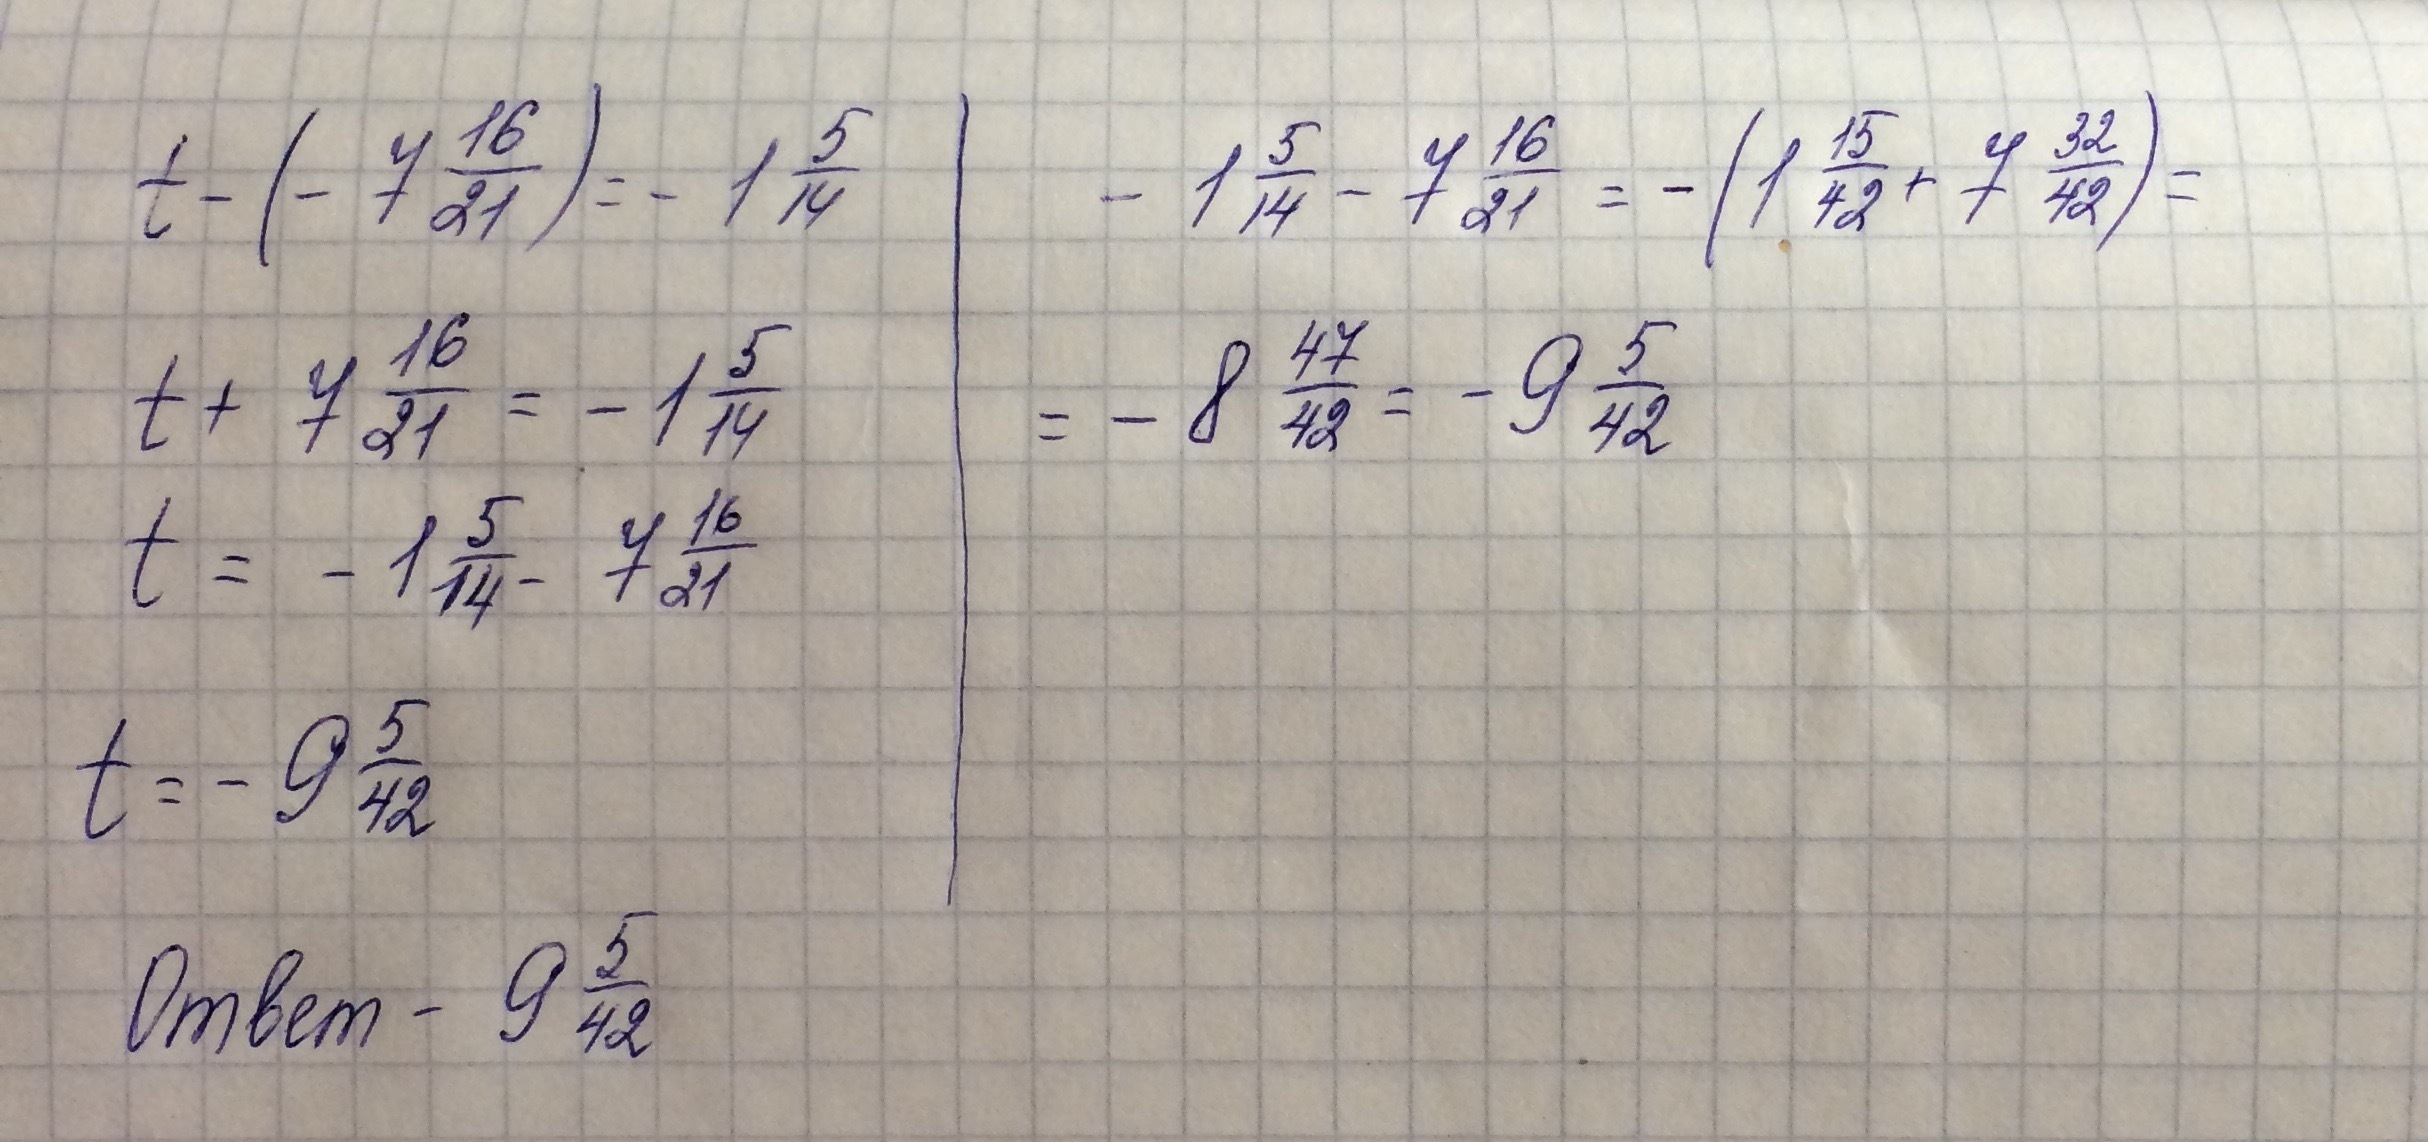 t - (- 7 16/21) = - 1 5/14
t + 7 16/21 = - 1 5/14
t = - 1 5/14 - 7 16/21
t = - 9 5/42
Ответ - 9 5/42
- 1 5/14 - 7 16/21 = - (1 15/42 + 7 32/42) =
= - 8 47/42 = - 9 5/42